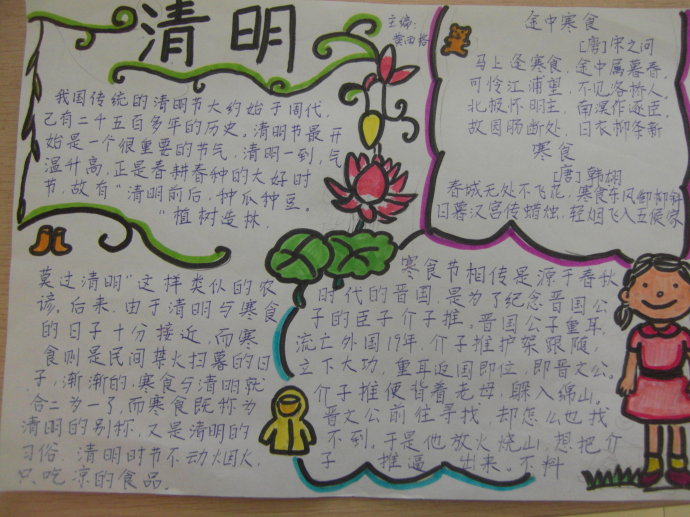 清明
主编:
我国传统的清明节大约始于周代,
己有二千五百多年的历史。清明节最开
始是一个很重要的节气,清明一到,气
温升高,正是春耕春种的大好时
节,故有“清明前后,种瓜种豆。
“植树造林,
莫过清明”这样类似的农
谚。后来,由于清明与寒食
的日子十分接近,而寒
食则是民间禁火扫墓的日
子,渐渐的,寒食与清明就
合二为一了,而寒食既称为
清明的别称,又是清明的
习俗,清明时节不动烟火,
只吃凉的食品。
途中寒食
[唐]宋之问
马上逢寒食,途中属暮春,
可怜江浦望,不见洛桥人,
北极怀明主,南溟作逐臣,
故园肠断处,日衣柳条新
寒食
[唐]韩翃
春城无处不飞花,寒食东风御柳斜
日暮汉宫传蜡烛,轻烟飞入五侯家
寒食节相传是源于春秋
时代的晋国,是为了纪念晋国公
子的臣子介子推。晋国公子重耳,
流亡外国19年,介子推护驾跟随
立下大功,重耳返国即位,即晋文公。
介子推便背着老母,躲入绵山。
晋文公前往寻找,却怎么也找
不到,于是他放火烧山,想把介
子推逼出来。不料